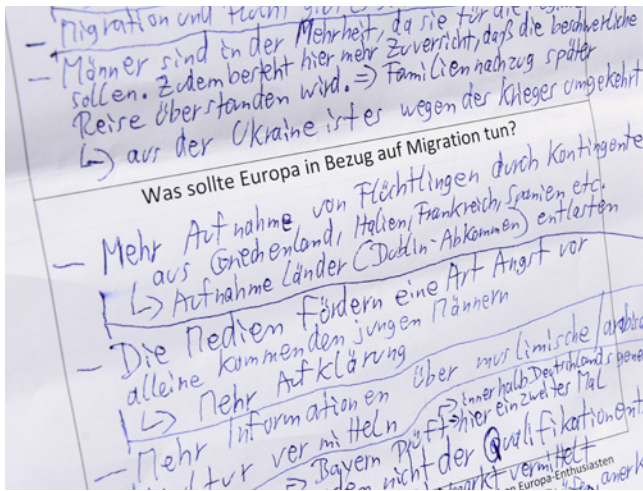 – Migration und Flucht
– Männer sind in der Mehrheit, da sie für die
sollen. Zudem besteht hier mehr Zuversicht, daß die beschwerliche
Reise überstanden wird. => Familiennachzug später
↳ aus der Ukraine ist es wegen des Krieges umgekehrt
Was sollte Europa in Bezug auf Migration tun?
– Mehr Aufnahme von Flüchtlingen durch Kontingente
aus Griechenland, Italien, Frankreich, Spanien etc.
↳ Aufnahmeländer (Dublin-Abkommen) entlasten
– Die Medien fördern eine Art Angst vor
alleine kommenden jungen Männern
↳ Mehr Aufklärung
– Mehr Informationen über muslimische/arabisch
vermitteln
innerhalb Deutschlands
=> Bayern prüft hier ein zweites Mal
nicht der Qualifikation
vermittelt
en Europa-Enthusiasten